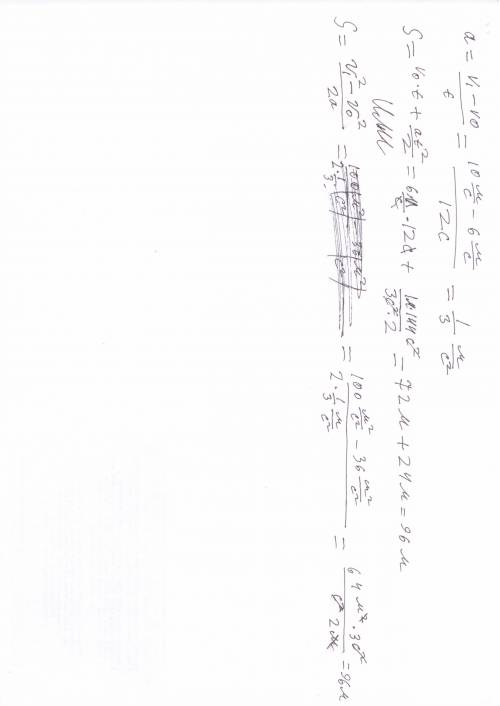 a = (v₁ − v0)/t = (10 м/с − 6 м/с)/12с = 1/3 м/с²
S = v0·t + at²/2 = 6 м/с · 12с + 1м·144с²/3с²·2 = 72м + 24м = 96м
Или
S = (v₁² − v0²)/2a = (100 м²/с² − 36 м²/с²)/(2·1/3 м/с²) = 64м²·3с²/с²·2м = 96м